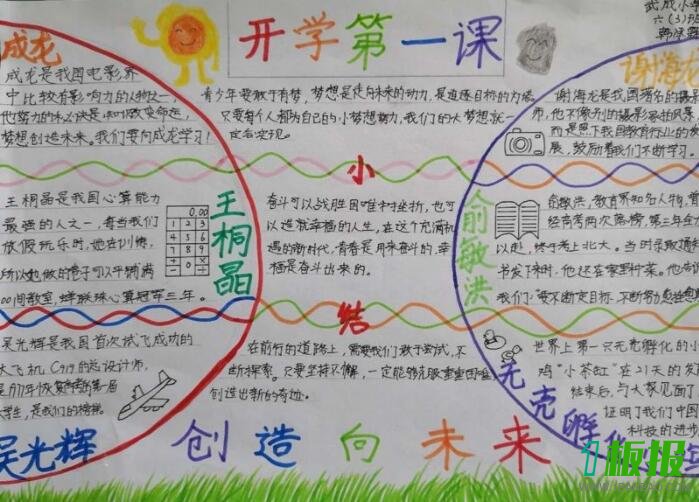 开学第一课
武成小学
六(3)班
成龙
成龙是我国电影界
中比较有影响力的人物之一,
梦想创造未来。我们要向成龙学习!
青少年要敢于有梦,梦想是走向未来的动力,是追逐目标的力量
只要每个人都为自己的小梦想努力,我们的大梦想就一
定会实现。
谢海龙
谢海龙是我国著名的摄影
展,鼓励着我们不断学习。
王桐晶
王桐晶是我国心算能力
最强的人之一,每当我们
放假玩乐时,她在训练,
00间教室,蝉联珠心算冠军三年。
0.00
1 2 3
4 5 6
7 8 9
小
奋斗可以战胜困难和坎坷,也可
以造就幸福的人生,在这个充满机
遇的新时代,青春是用来奋斗的,幸
福是奋斗出来的。
俞敏洪
俞敏洪,教育界知名人物,曾
经高考两次落榜,第三年全力
以赴,终于考上北大。当时录取通知
书发下来时,他还在家里种菜。
我们:要不断定目标,不断努力
结
在前行的道路上,需要我们敢于尝试,不
断探索。只要坚持不懈,一定能够克服重重困难
创造出新的奇迹。
吴光辉
吴光辉是我国首次试飞成功的
大飞机C919的总设计师,
是1977年恢复高考的第一届
大学生,是我们的榜样。
无壳孵化
世界上第一只无壳孵化的小
鸡"小茶缸"在21天的发
结束后,与大家见面了
证明了我们中国
科技的进步
创造向未来
1板报